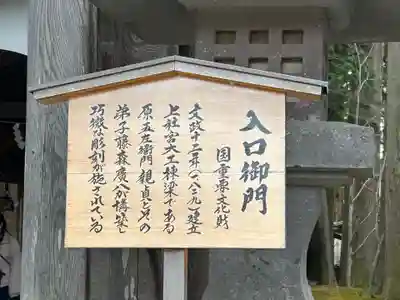 入口御門
国重要文化財
文政十二年(一八二九)建立
上社宮大工棟梁である
原五左衛門親貞とその
弟子藤森廣八が構築し
巧緻な彫刻が施されている